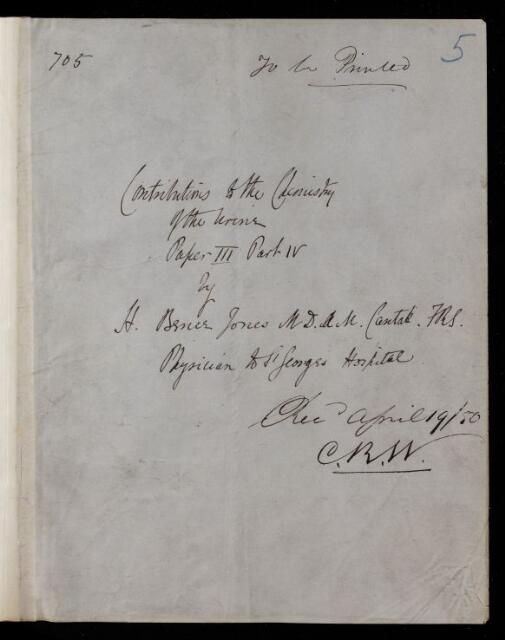 705
To be Printed
5
Contributions to the Chemistry
of the Urine
Paper III Part IV
by
H. Bence Jones M.D. A.M. Cantab. F.R.S.
Physician to St Georges Hospital
Recd April 19/50
C.R.W.